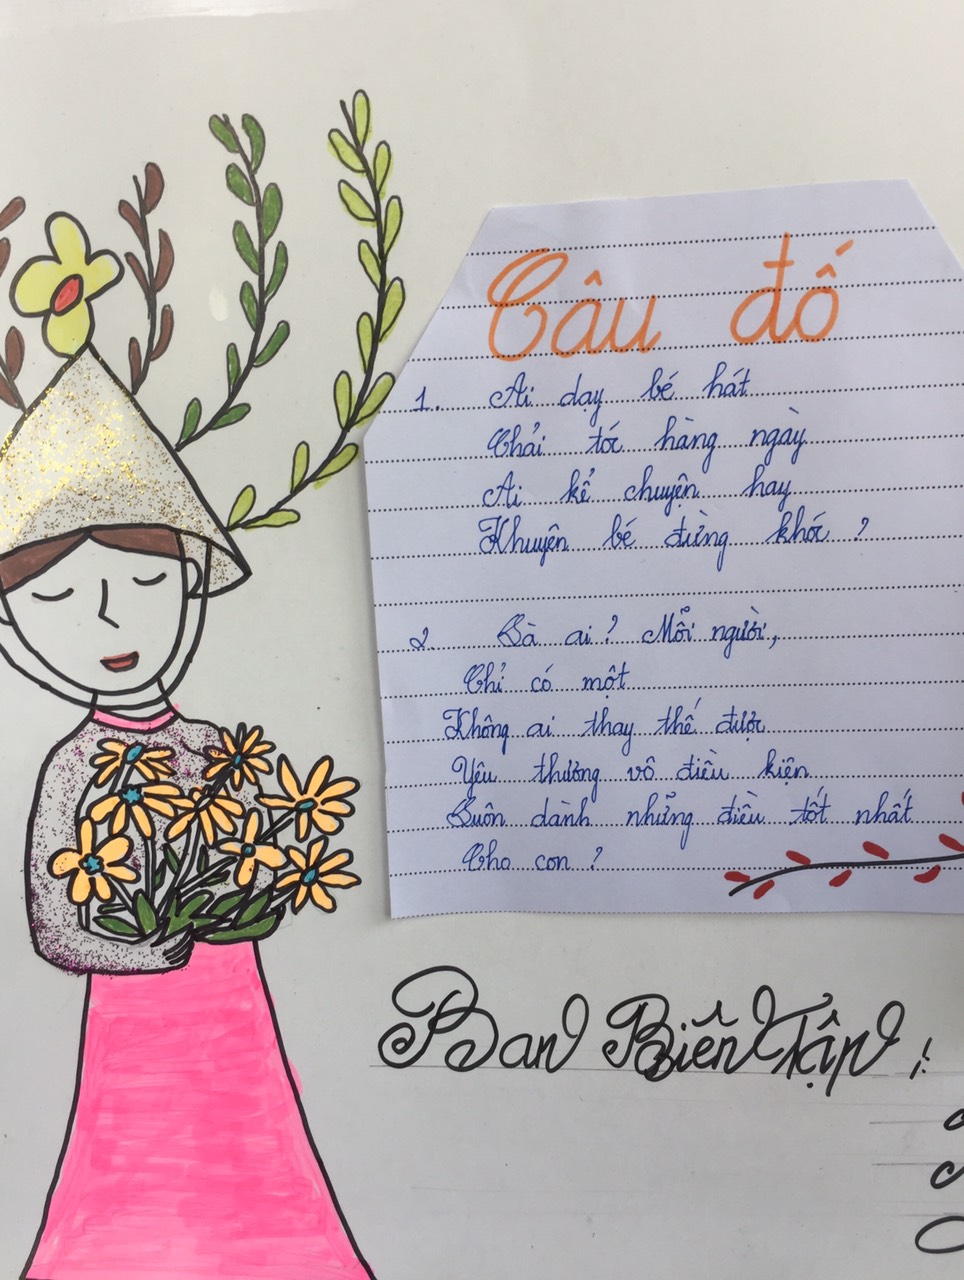 Câu đố
1. Ai dạy bé hát
Chải tóc hàng ngày
Ai kể chuyện hay
Khuyên bé đừng khóc ?
2 Là ai ? Mỗi người,
Chỉ có một
Không ai thay thế được
Yêu thương vô điều kiện
Luôn dành những điều tốt nhất
Cho con ?
Ban Biên Tập :